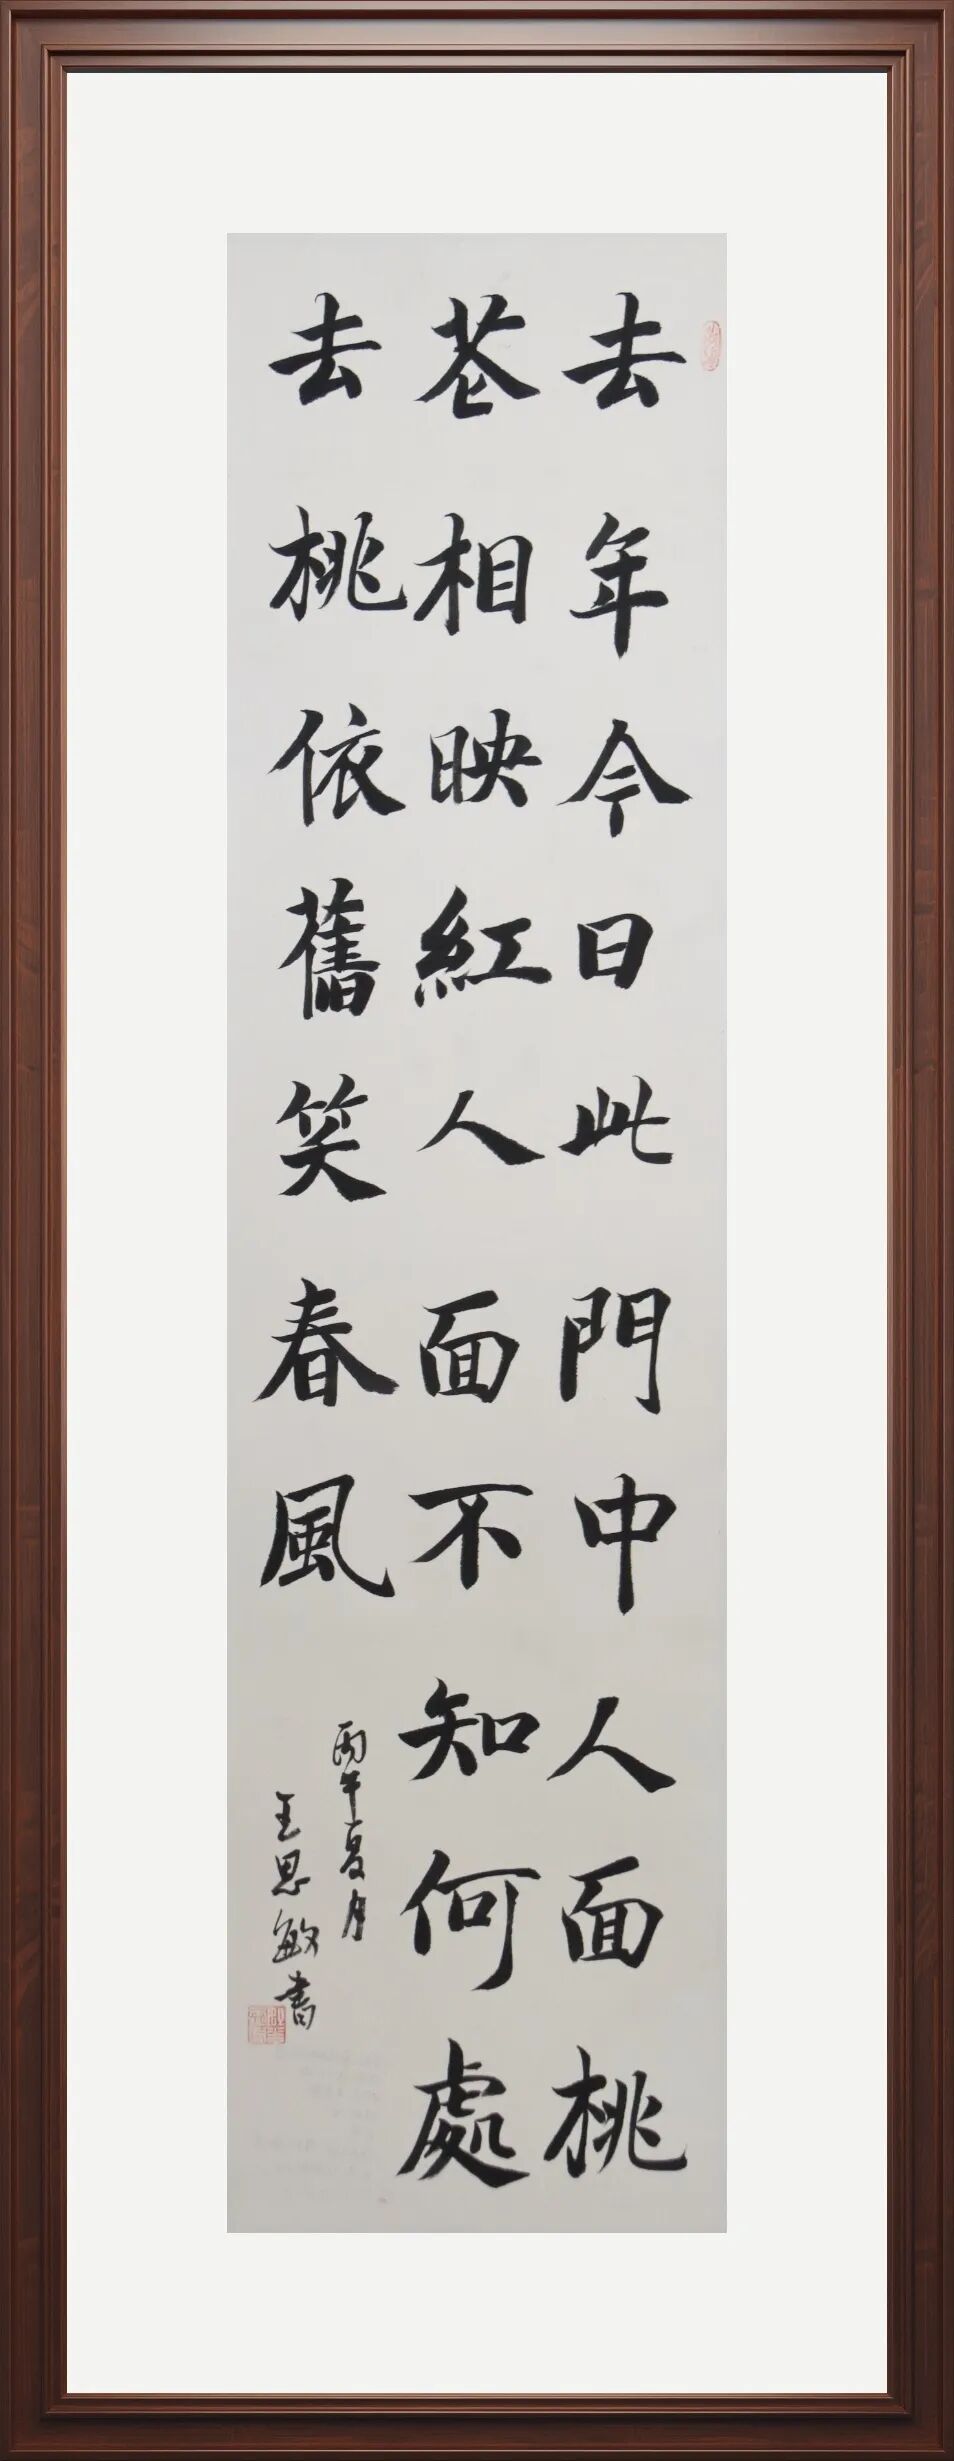 去年今日此門中人面桃
花相映紅人面不知何處
去桃依舊笑春風
丙午夏月
王思敏書